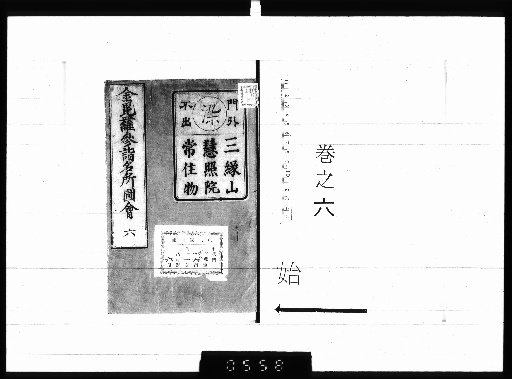 巻之六
始
門外
不出
三縁山
慧照院
常住物
金毘羅參詣名所圖會
六
0558